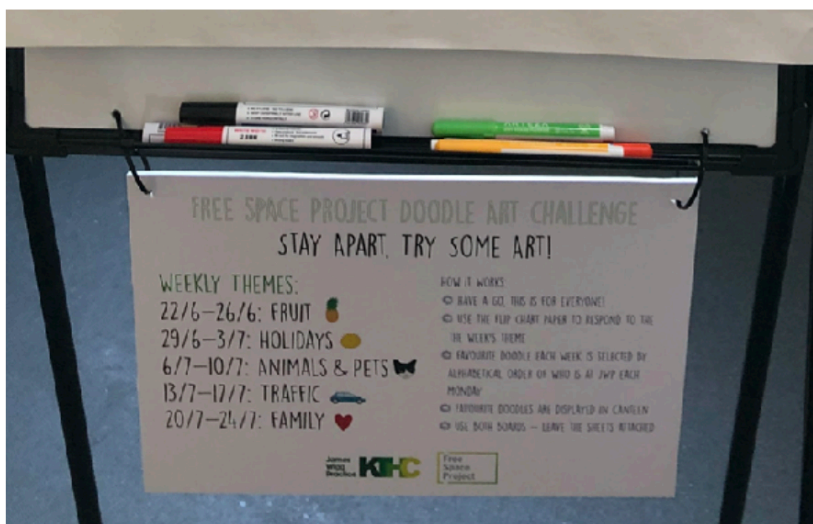 FREE SPACE PROJECT DOODLE ART CHALLENGE
STAY APART, TRY SOME ART!
WEEKLY THEMES:
22/6–26/6: FRUIT
29/6–3/7: HOLIDAYS
6/7–10/7: ANIMALS & PETS
13/7–17/7: TRAFFIC
20/7–24/7: FAMILY
HOW IT WORKS
HAVE A GO, THIS IS FOR EVERYONE!
USE THE FLIP CHART PAPER TO RESPOND TO THE
THE WEEK'S THEME
FAVOURITE DOODLE EACH WEEK IS SELECTED BY
ALPHABETICAL ORDER OR WHO IS AT JWP EACH
MONDAY
FAVOURITE DOODLES ARE DISPLAYED IN CANTEEN
USE BOTH BOARDS – LEAVE THE SHEETS ATTACHED
James
Wigg
Practice
KTHC
Free
Space
Project